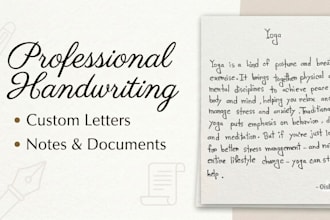 Professional
Handwriting
• Custom Letters
• Notes & Documents
Yoga
Yoga is a kind of posture and brea
exercise. It brings together physical a
mental disciplines to achieve peace
body and mind, helping you relax an
manage stress and anxiety. Traditiona
yoga puts emphasis on behavior, d
and meditation. But if you're just lo
for better stress management - and n
entire lifestyle change - yoga can st
help.